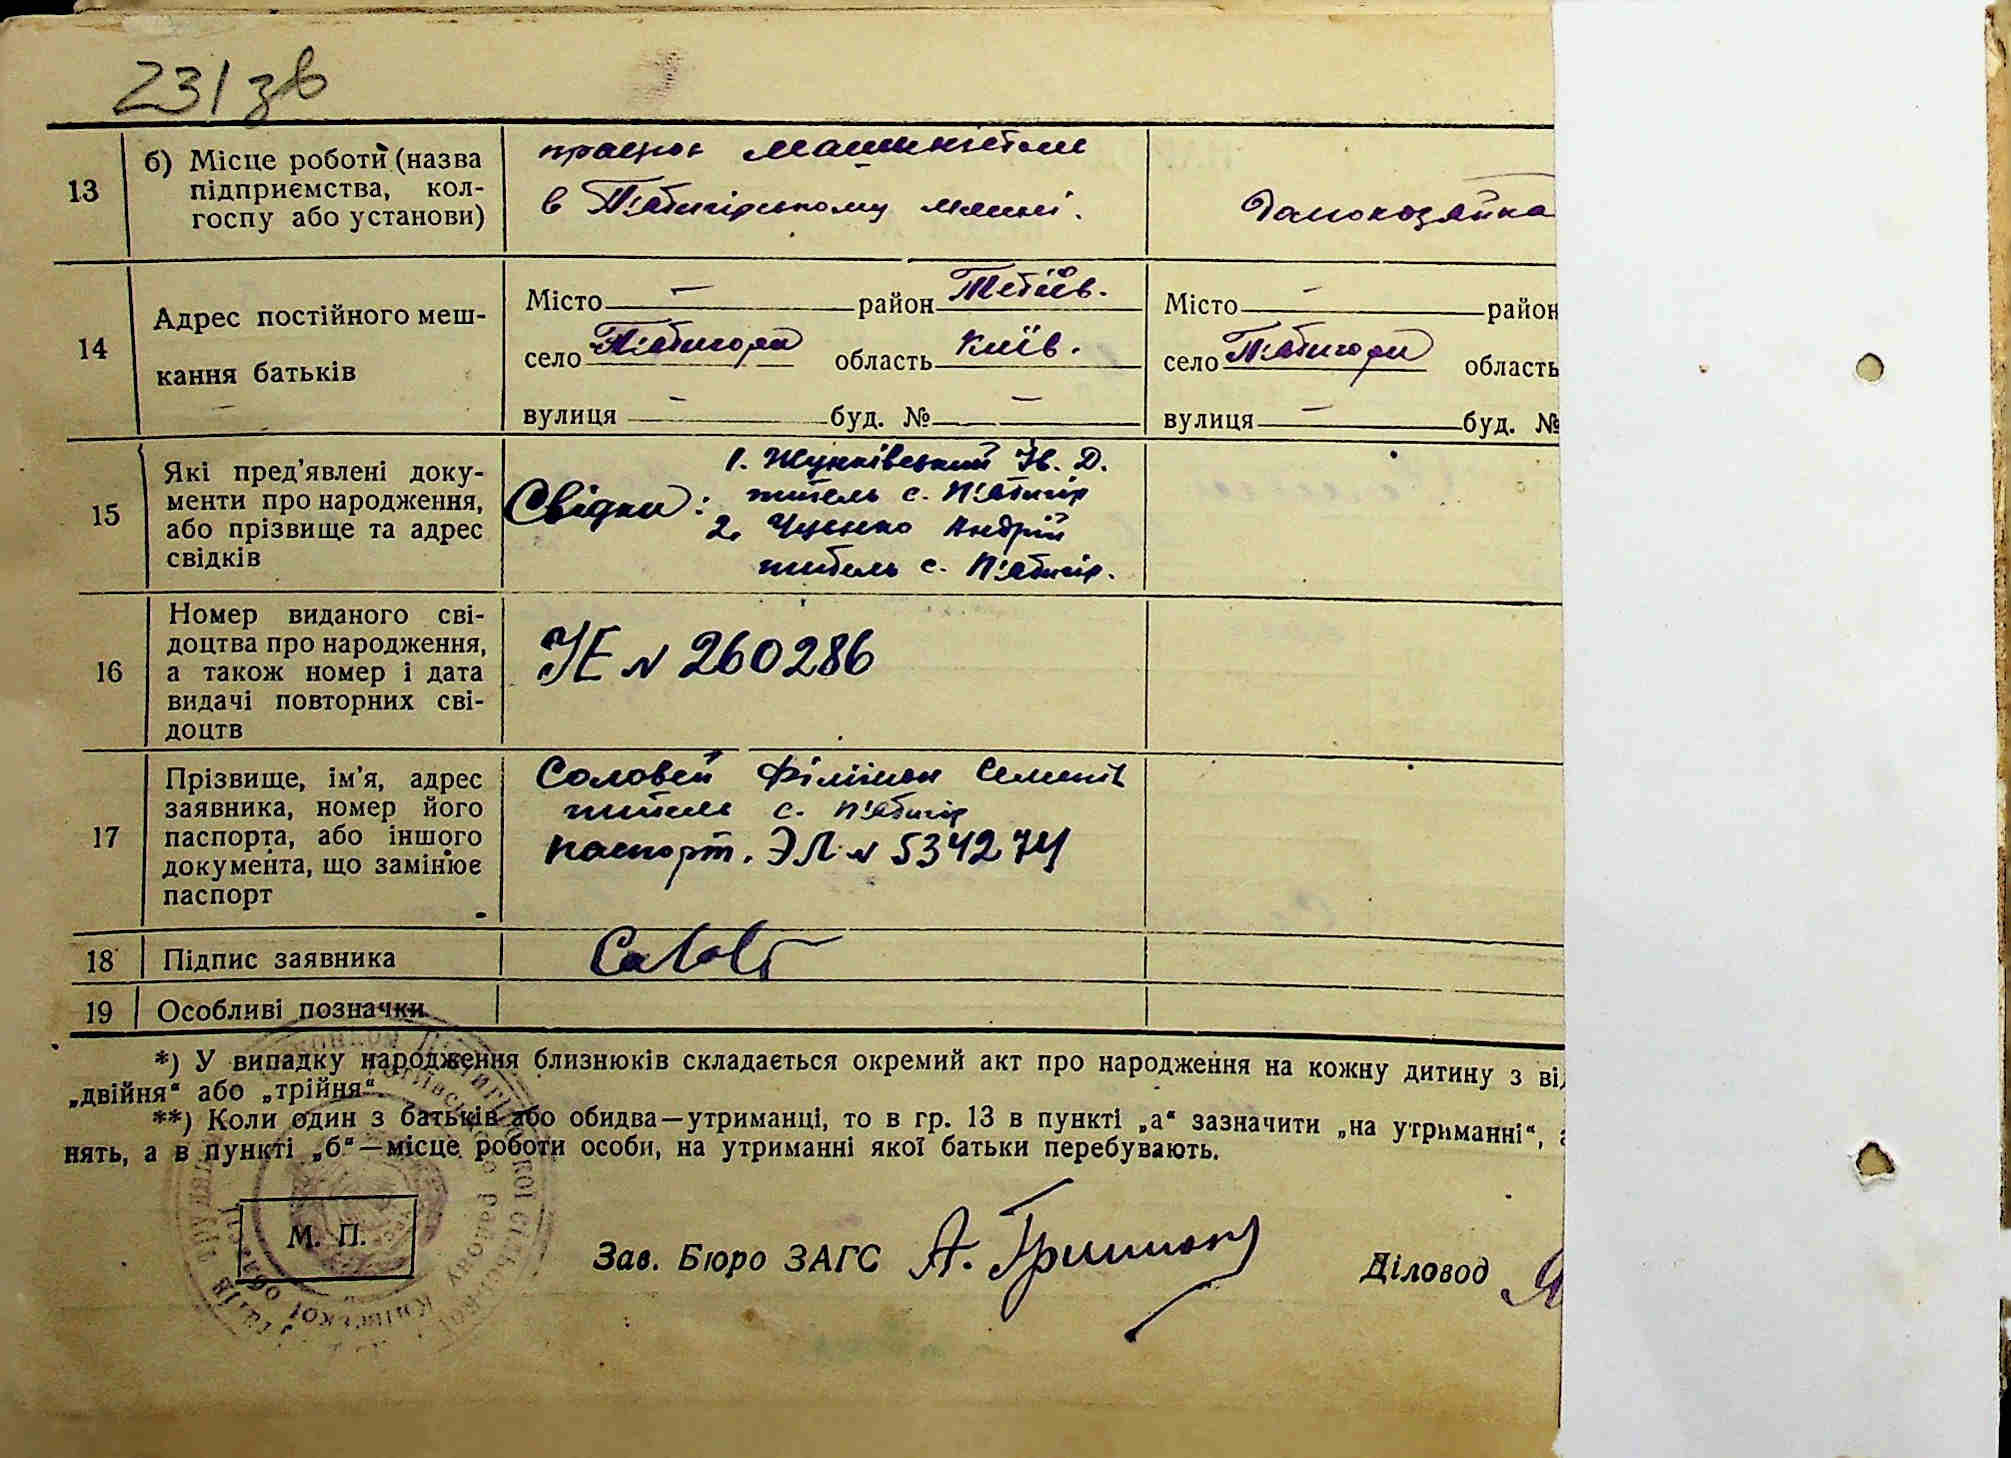 231 зв
13
б) Місце роботи (назва
підприємства, кол-
госпу або установи)
працює машиністом
в П'ятигірському млині.
Домохозяйка
14
Адрес постійного меш-
кання батьків
Місто — район Тетіїв.
село П'ятигори область Київ.
вулиця — буд. № —
Місто — район
село П'ятигори область
вулиця — буд. №
15
Які пред'явлені доку-
менти про народження,
або прізвище та адрес
свідків
Свідки:
1. Жунківський Ів. Д.
житель с. П'ятигір
2. Андрій
житель с. П'ятигір.
16
Номер виданого сві-
доцтва про народження,
а також номер і дата
видачі повторних сві-
доцтв
УЕ № 260286
17
Прізвище, ім'я, адрес
заявника, номер його
паспорта, або іншого
документа, що замінює
паспорт
Соловей Філімон Семенів
житель с. П'ятигір
паспорт. ЭЛ № 534274
18
Підпис заявника
19
Особливі позначки
*) У випадку народження близнюків складається окремий акт про народження на кожну дитину з
„двійня“ або „трійня“
**) Коли один з батьків або обидва—утриманці, то в гр. 13 в пункті „а“ зазначити „на утриманні“,
нять, а в пункті „б“—місце роботи особи, на утриманні якої батьки перебувають.
М. П.
Зав. Бюро ЗАГС А.
Діловод